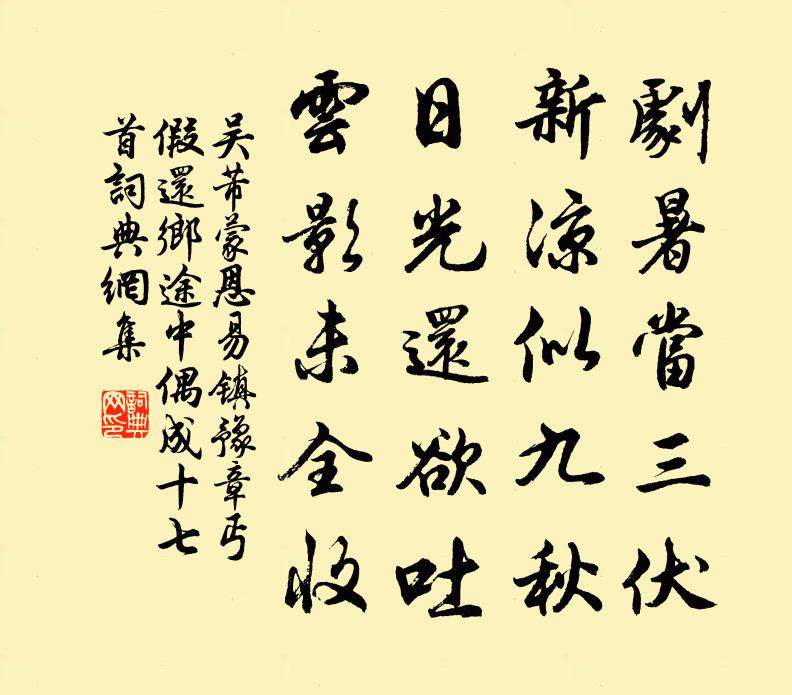 劇暑當三伏
新涼似九秋
日光還欲吐
雲影未全收
吴芾蒙恩易鎮豫章丐
假還鄉途中偶成十七
首詞典網集
詞典
网印